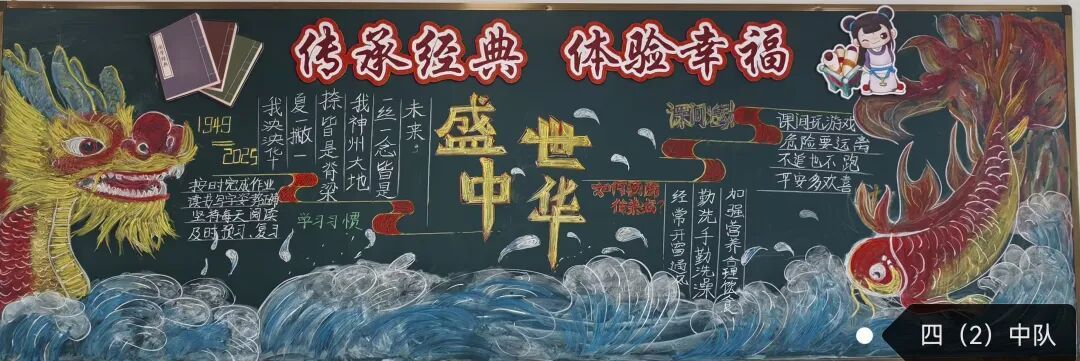 传承经典 体验幸福
1949
2025
我泱泱华
夏一撇一
捺皆是脊梁
我神州大地
一丝一念皆是
未来。
盛世
中华
按时完成作业
读书写字姿势正确
坚持每天阅读
及时预习、复习
学习习惯
课间活动
课间玩游戏
危险要远离
不追也不跑
平安多欢喜
加强营养合理饮食
勤洗手勤洗澡
经常开窗通风
四（2）中队